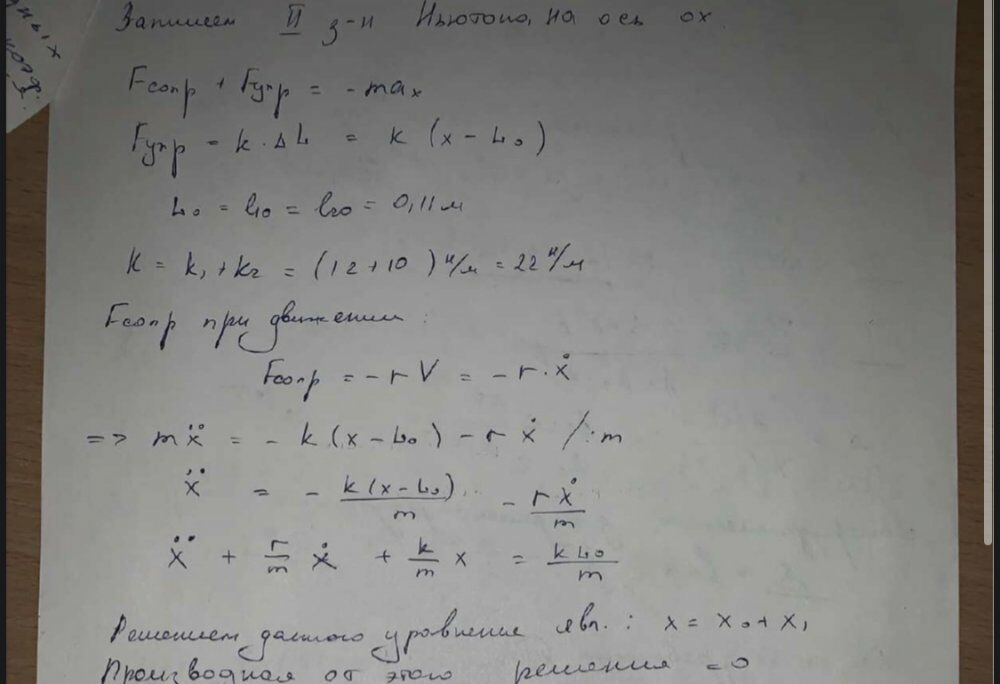 ных
Запишем II з-н Ньютона, на ось ox.
Fсопр + Fупр = - max
Fупр = k · Δ L = k (x - L₀)
L₀ = l₁₀ = l₂₀ = 0,11 м
K = k₁ + k₂ = (12 + 10) н/м = 22 н/м
Fсопр при движении :
Fсопр = - r V = - r · ẋ
=> m ẍ = - k (x - L₀) - r ẋ / : m
ẍ = - k (x - L₀) / m - r ẋ / m
ẍ + r/m ẋ + k/m x = k L₀ / m
Решением данного уравнения явл. : x = x₀ + x₁
Производная от этого решения = 0